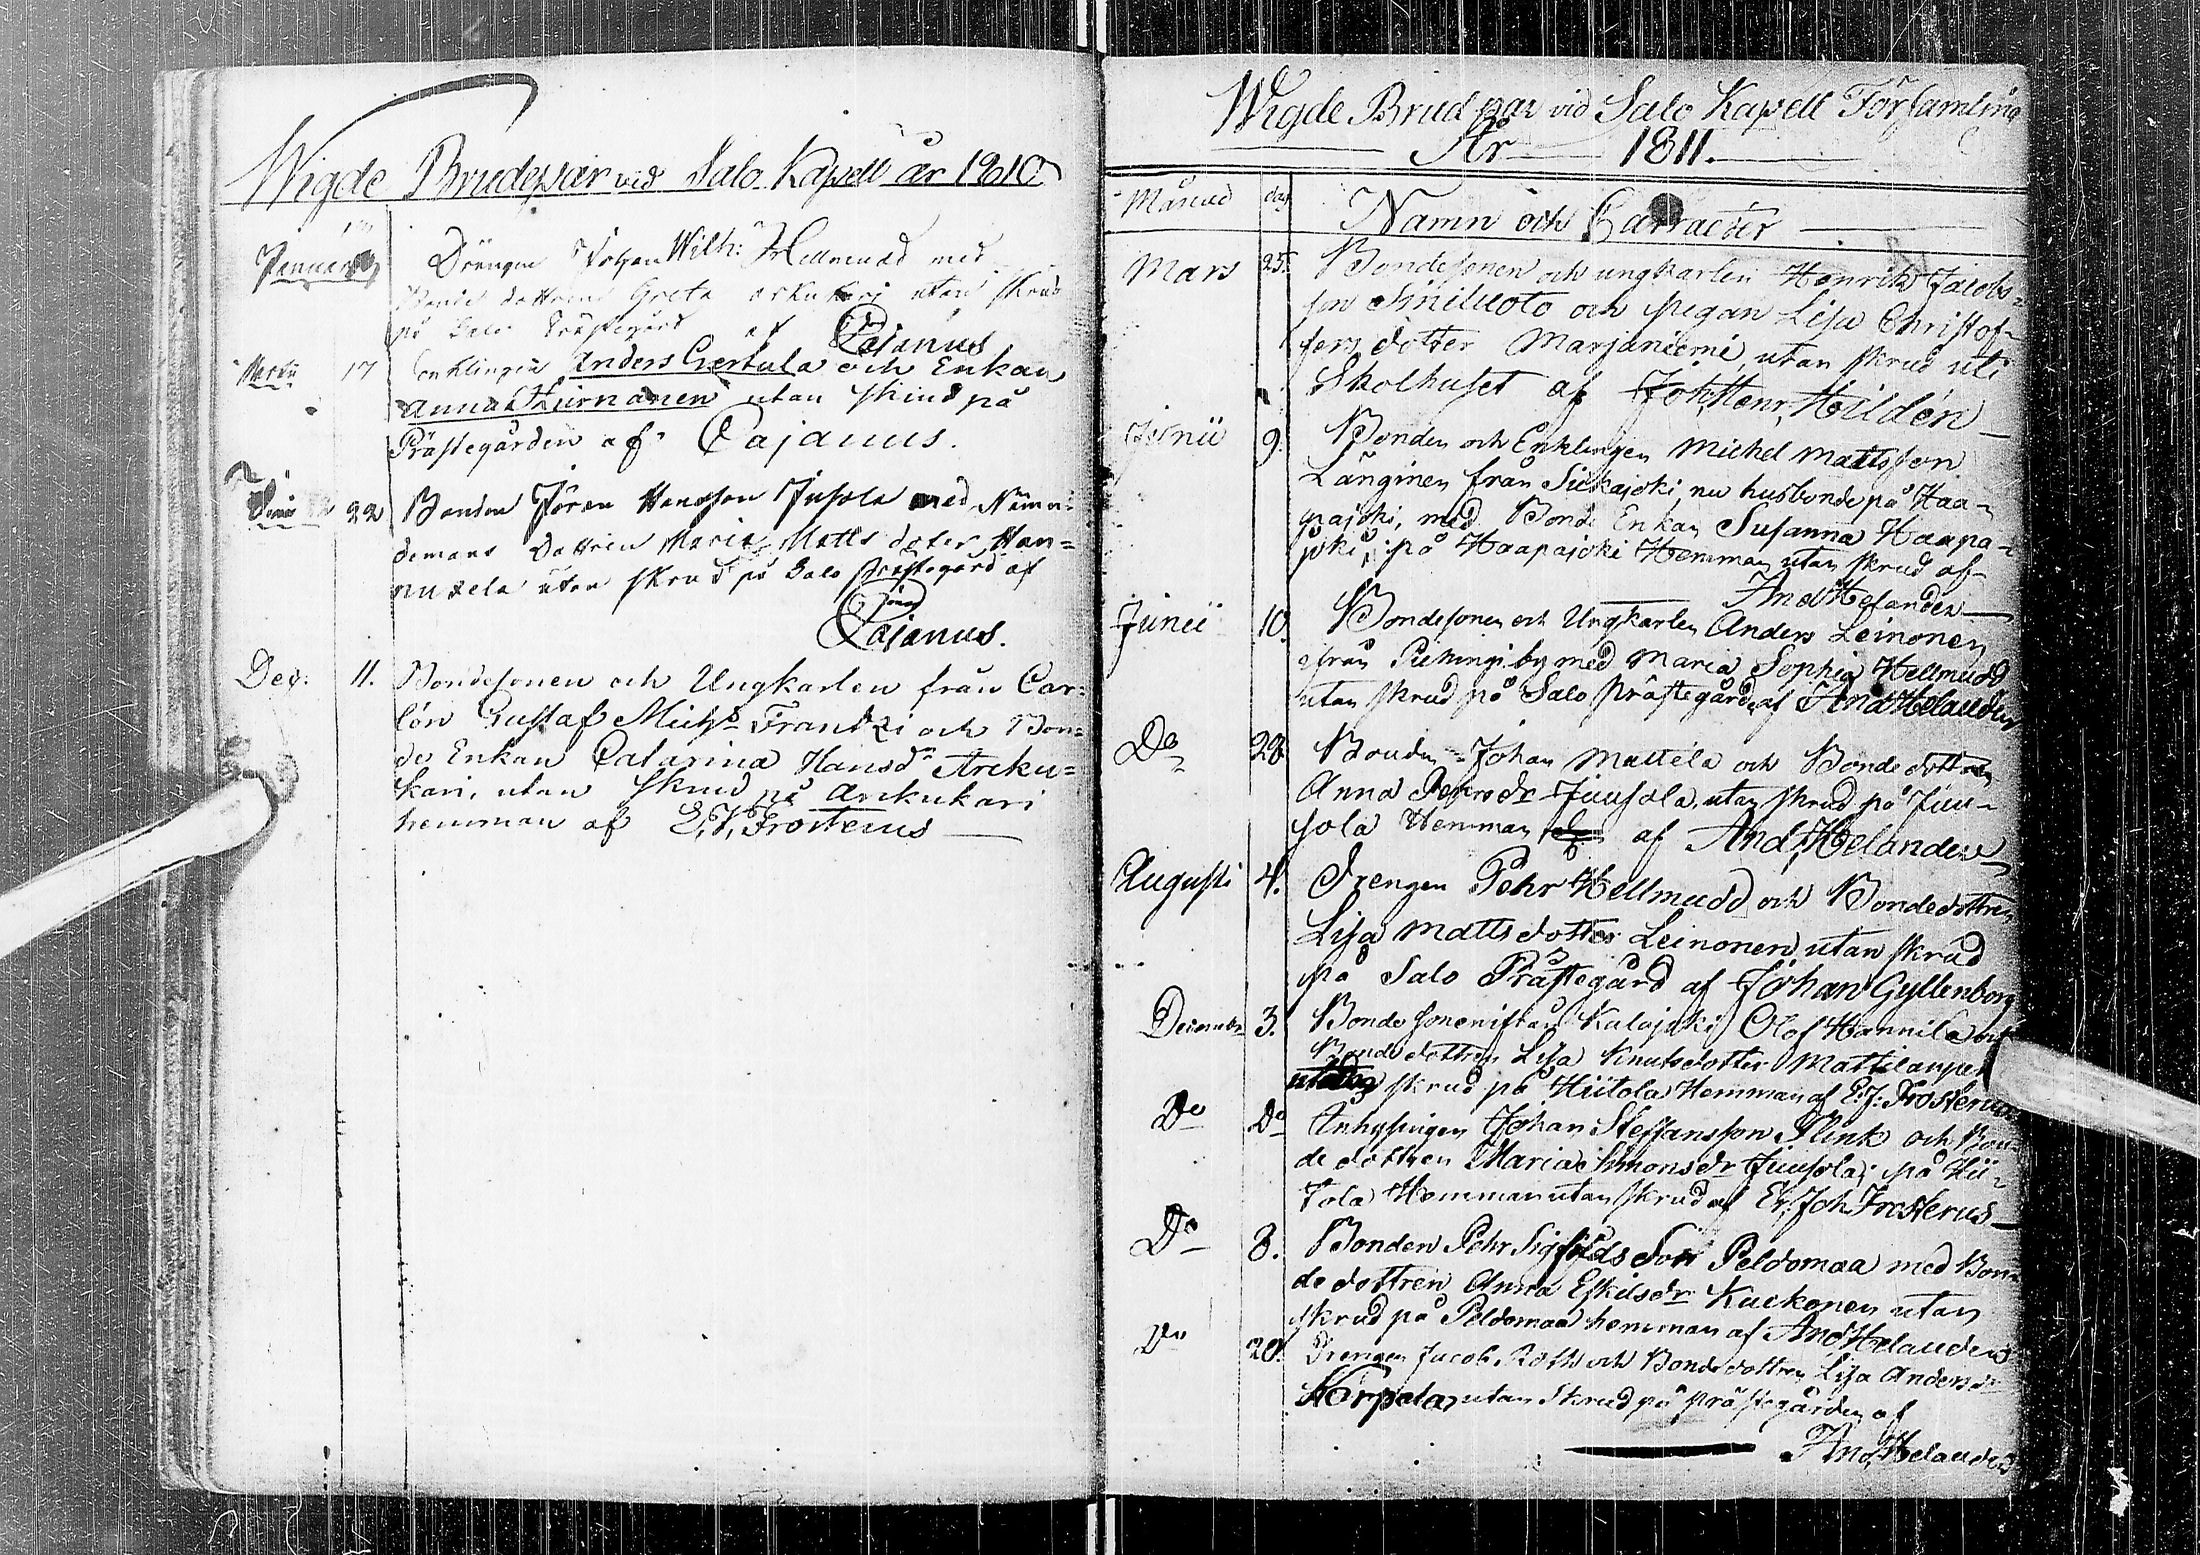 Wigde Brudepar vid Salo Kapell år 1810
Januari Drängen Johan Wilh: Hellmudd med
Bonde dottren Greta arkukari utan skrud
på Salo Prästegård af Cajanus
Martii 17 Enklingen Anders Gertula och Enkan
Anna Kurnanen utan skrud på
Prästegården af Cajanus.
22 Bonden Jören Hansson Jusola med Nämn=
demans Dottren Maria Matts doter Han=
nuxela utan skrud på Salo Prästegård af
Cajanus.
Dec: 11. Bondesonen och Ungkarlen från Car=
lön Gustaf Michs Frantzi och Bon=
de Enkan Catarina Hansdr Arcku=
kari, utan skrud på Arckukari
hemman af E. J. Frosterus
Wigde Brudpar vid Salo Kapell Församling
År 1811.
Månad dag Namn och Carracter
Mars 25. Bondesonen och ungkarlen Henrik Jacobs=
son Siniluoto och pigan Lisa Christof=
fers dotter Marjaniemi, utan skrud uti
Skolhuset af Joh. Henr. Hildén
Junii 9. Bonden och Enklingen Michel Mattsson
Länginen från Siikajoki, nu husbonde på Haa=
pajoki, med Bonde Enkan Susanna Haapa=
joki, på Haapajoki Hemman utan skrud af
And Helander
Junii 10. Bondesonen och Ungkarlen Anders Leinonen
ifrån Piehingi by med Maria Sophia Hellmudd
utan skrud på Salo Prästegård, af And Helander
Do 28 Bonden Johan Mattela och Bonde dottren
Anna Pehrsdr Juusola, utan skrud på Juu=
sola Hemman af And; Helander
Augusti 4. Drengen Pehr Hellmudd och Bondedottren
Lisa Mattsdotter Leinonen, utan skrud
på Salo Prästegård af Johan Gyllenborg
December 3. Bonde sonen ifrån Kalajoki Olof Hannila och
Bonde dottren Lisa Knutsdotter Mattilanper
utan skrud på Hiitola Hemman af E. J. Frosterus
Do Do Inhysingen Johan Steffansson Flink och Bon=
de dottren Maria Simonsdr Juusola; på Hii=
tola Hemman utan skrud af Er. Joh Frosterus
Do 8. Bonden Pehr Sigfrids Son Peldomaa med Bon=
de dottren Anna Eskilsdr Kuckonen utan
skrud på Peldomaa hemman af And Helander
Do 20. Drengen Jacob Roth och Bonde dottren Lisa Andersdr
Korpela utan Skrud på prästegården af
And; Helander